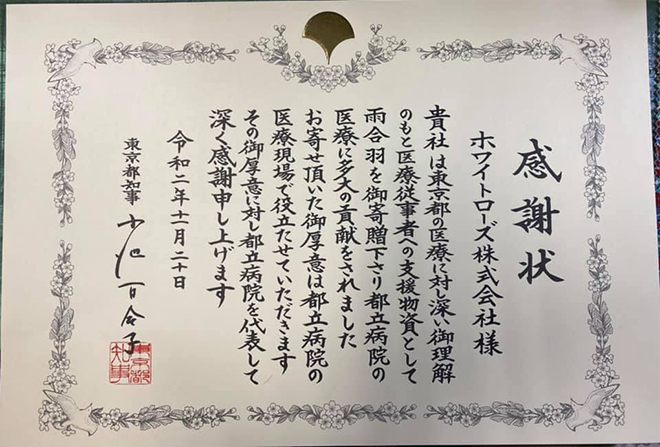 感謝状
ホワイトローズ株式会社様
貴社は東京都の医療に対し深い御理解
のもと医療従事者への支援物資として
雨合羽を御寄贈下さり都立病院の
医療に多大の貢献をされました
お寄せ頂いた御厚意は都立病院の
医療現場で役立たせていただきます
その御厚意に対し都立病院を代表して
深く感謝申し上げます
令和二年十一月二十日
東京都知事 小池百合子
東京都
知事